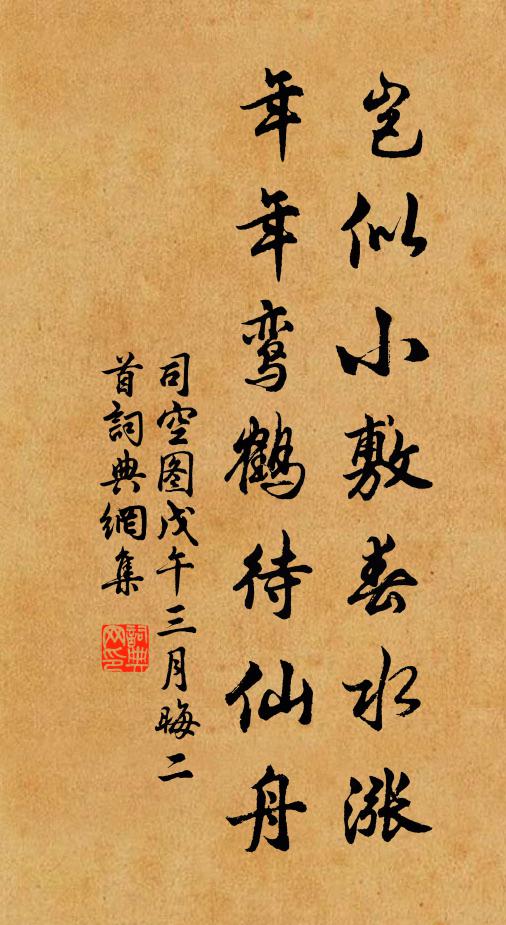 岂似小敷春水涨
年年鸾鹤待仙舟
司空图戊午三月晦二
首詞典網集
詞典网印